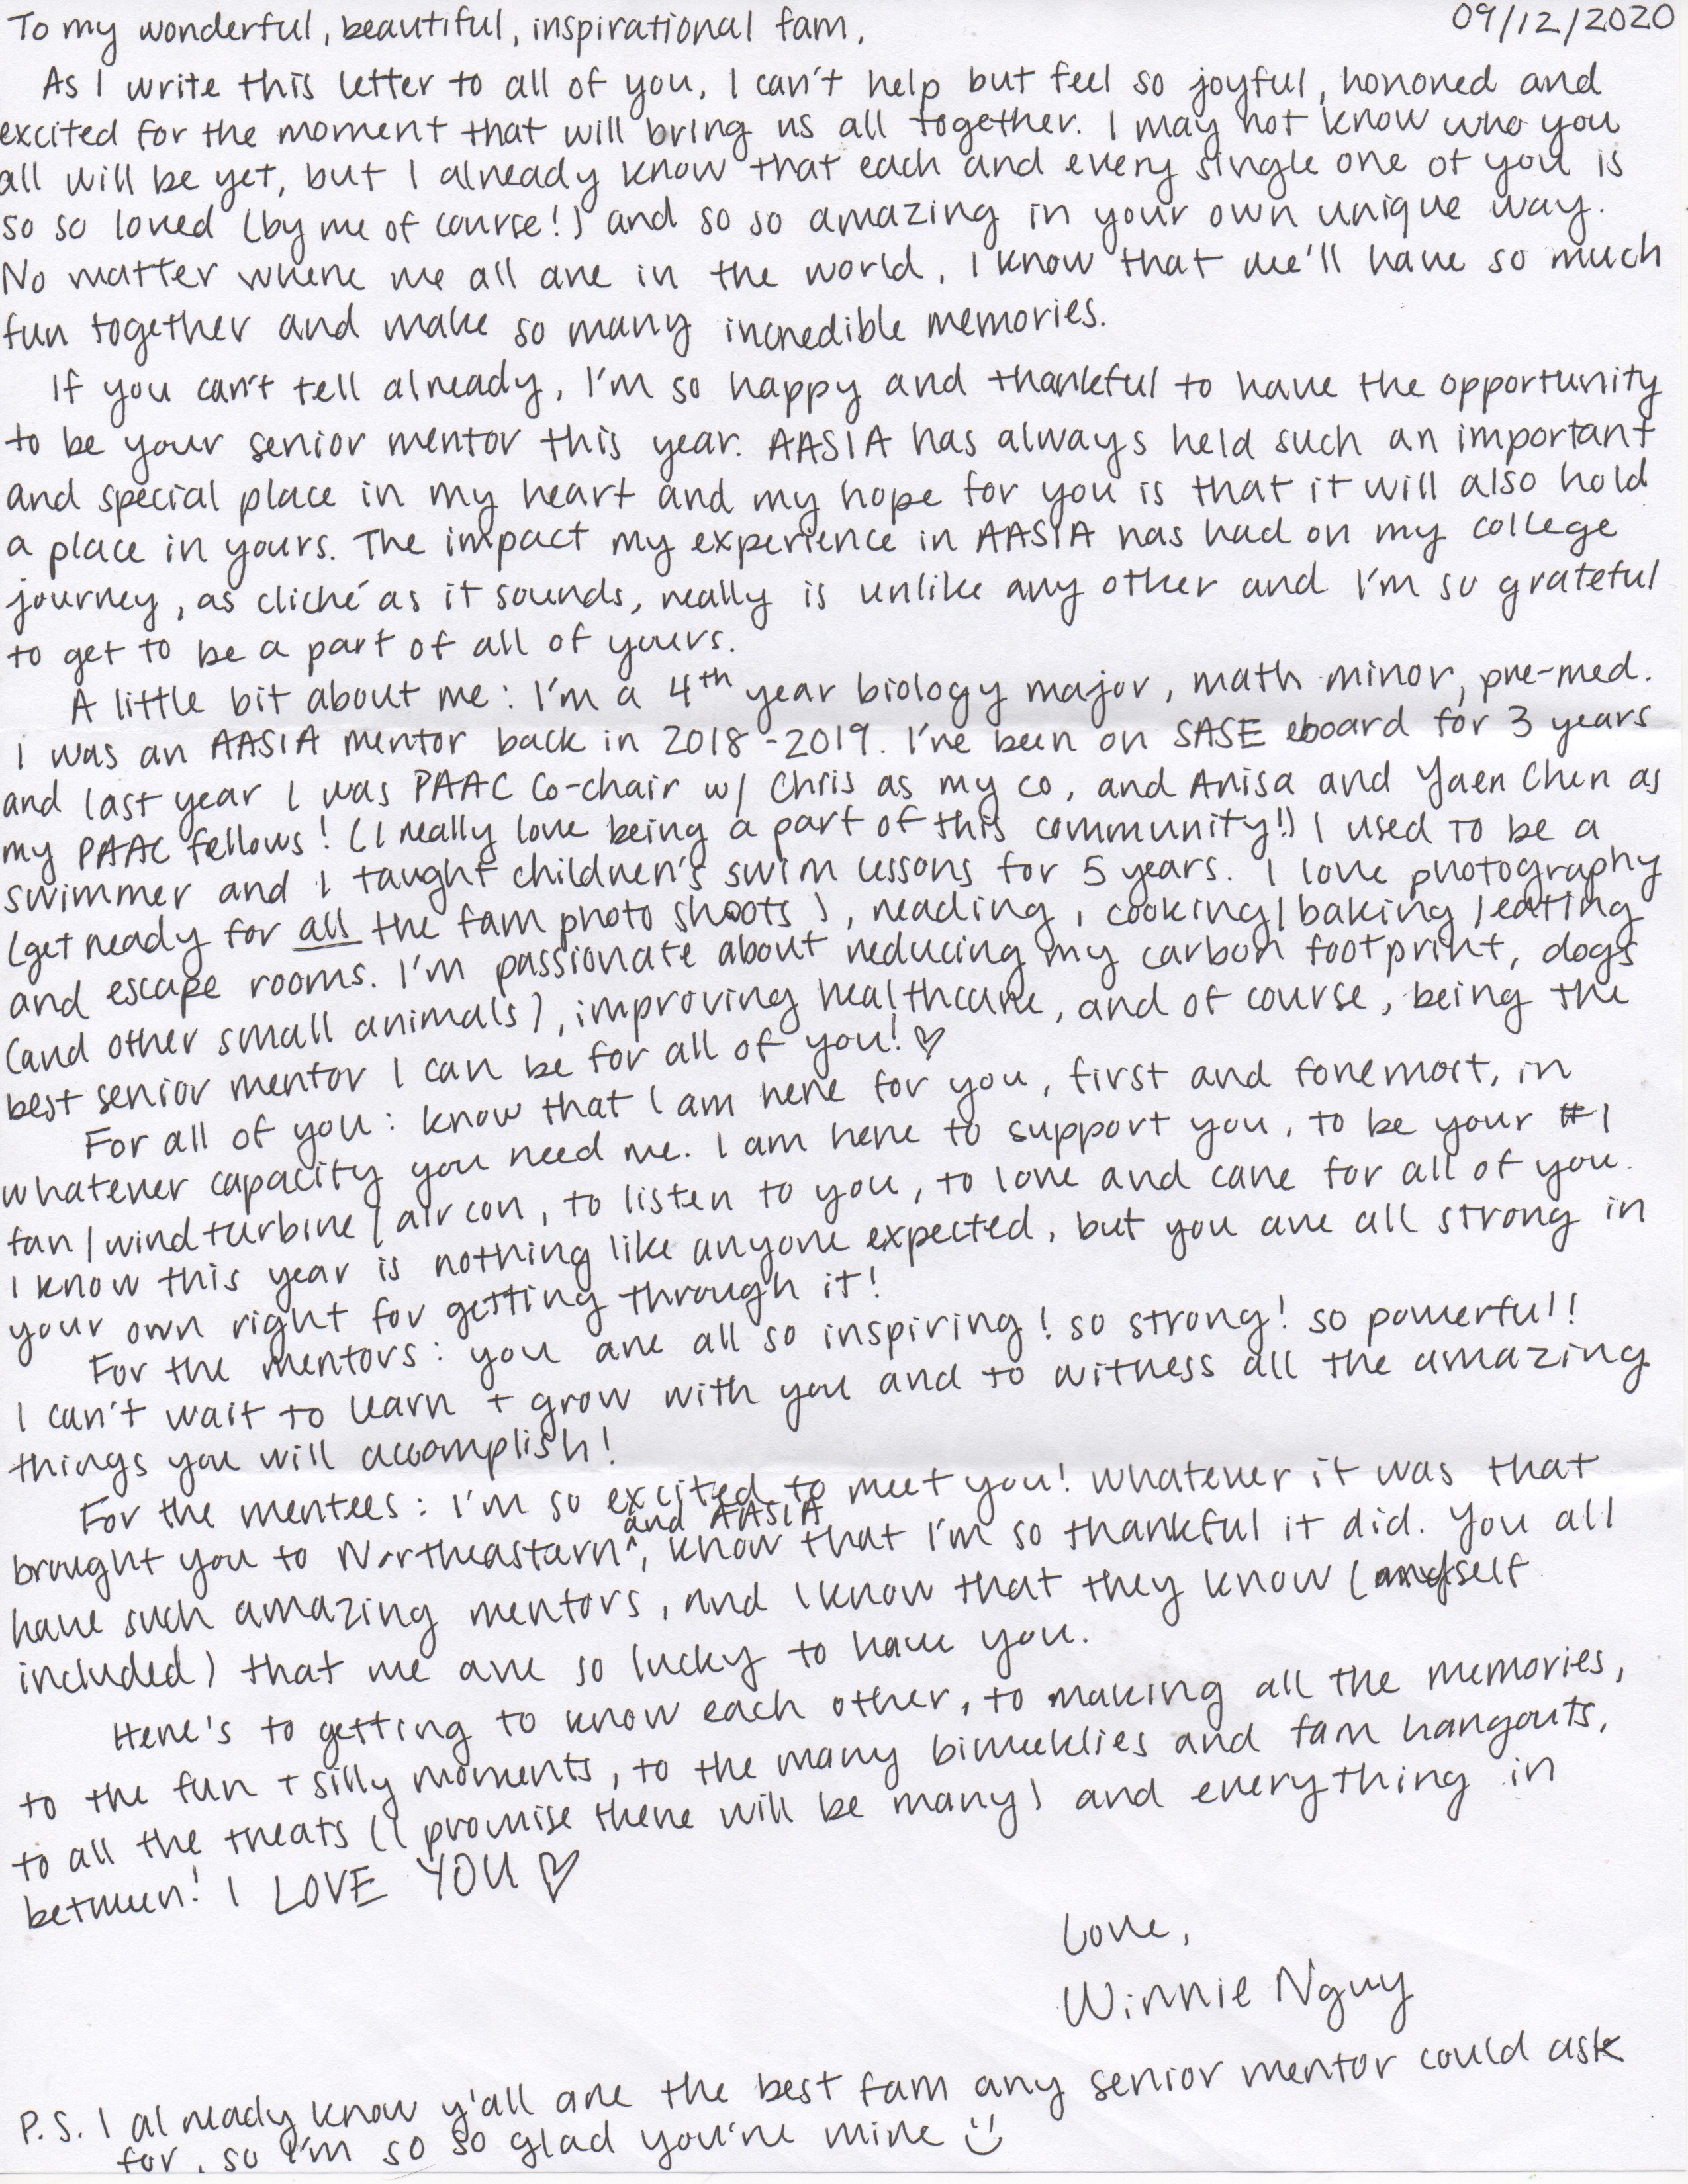 To my wonderful, beautiful, inspirational fam, 09/12/2020
As I write this letter to all of you, I can't help but feel so joyful, honored and
excited for the moment that will bring us all together. I may not know who you
all will be yet, but I already know that each and every single one of you is
so so loved (by me of course!) and so so amazing in your own unique way.
No matter where we all are in the world, I know that we'll have so much
fun together and make so many incredible memories.
If you can't tell already, I'm so happy and thankful to have the opportunity
to be your senior mentor this year. AASIA has always held such an important
and special place in my heart and my hope for you is that it will also hold
a place in yours. The impact my experience in AASIA has had on my college
journey, as cliché as it sounds, really is unlike any other and I'm so grateful
to get to be a part of all of yours.
A little bit about me: I'm a 4th year biology major, math minor, pre-med.
I was an AASIA mentor back in 2018-2019. I've been on SASE eboard for 3 years
and last year I was PAAC Co-chair w/ Chris as my co, and Anisa and Yaen Chen as
my PAAC fellows! (I really love being a part of this community!) I used to be a
swimmer and I taught children's swim lessons for 5 years. I love photography
(get ready for all the fam photo shoots), reading, cooking/baking/eating
and escape rooms. I'm passionate about reducing my carbon footprint, dogs
(and other small animals), improving healthcare, and of course, being the
best senior mentor I can be for all of you! ♡
For all of you: know that I am here for you, first and foremost, in
whatever capacity you need me. I am here to support you, to be your #1
fan/wind turbine/air con, to listen to you, to love and care for all of you.
I know this year is nothing like anyone expected, but you are all strong in
your own right for getting through it!
For the mentors: you are all so inspiring! so strong! so powerful!
I can't wait to learn + grow with you and to witness all the amazing
things you will accomplish!
For the mentees: I'm so excited to meet you! Whatever it was that
brought you to Northeastarn ^and AASIA, know that I'm so thankful it did. You all
have such amazing mentors, and I know that they know (myself
included) that we are so lucky to have you.
Here's to getting to know each other, to making all the memories,
to the fun + silly moments, to the many biweeklies and fam hangouts,
to all the treats (I promise there will be many) and everything in
between! I LOVE YOU ♡
Love,
Winnie Nguy
P.S. I already know y'all are the best fam any senior mentor could ask
for, so I'm so so glad you're mine :)